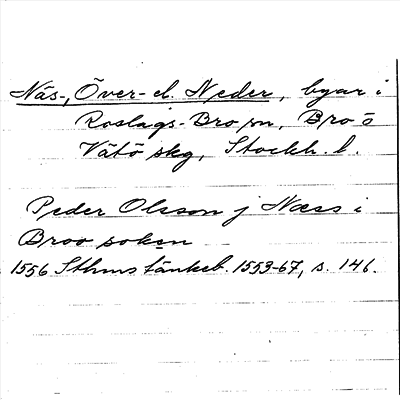 Näs-, Över- el. Neder, byar i
Roslags-Bro sn, Bro o
Vätö skg, Stockh. l.
Peder Olsson j Næss i
Broo soken
1556 Sthms tänkeb. 1553-67, s. 146.